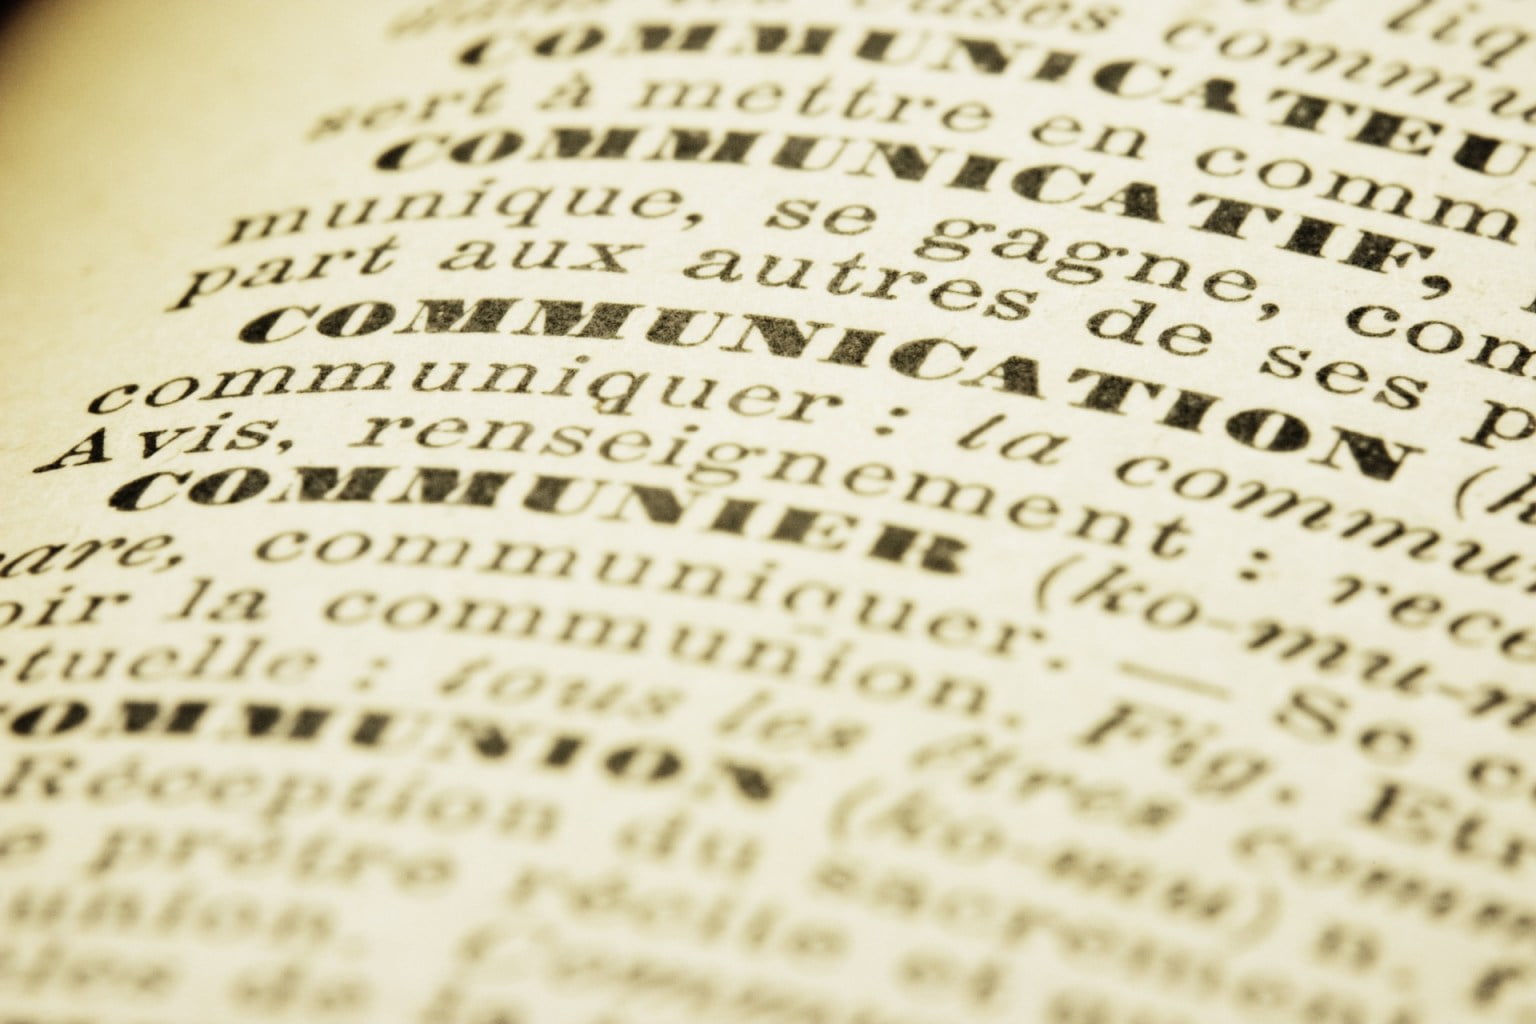 COMMUNICATEU
sert à mettre en comm
COMMUNICATIF,
munique, se gagne, com
part aux autres de ses p
COMMUNICATION (k
communiquer : la commun
Avis, renseignement : rece
COMMUNIER (ko-mu-n
care, communiquer. — Se c
oir la communion. Fig. Etr
tuelle : tous les êtres comm
COMMUNION (ko-mu) n.
Réception du sacrement
e prêtre récite et
union.